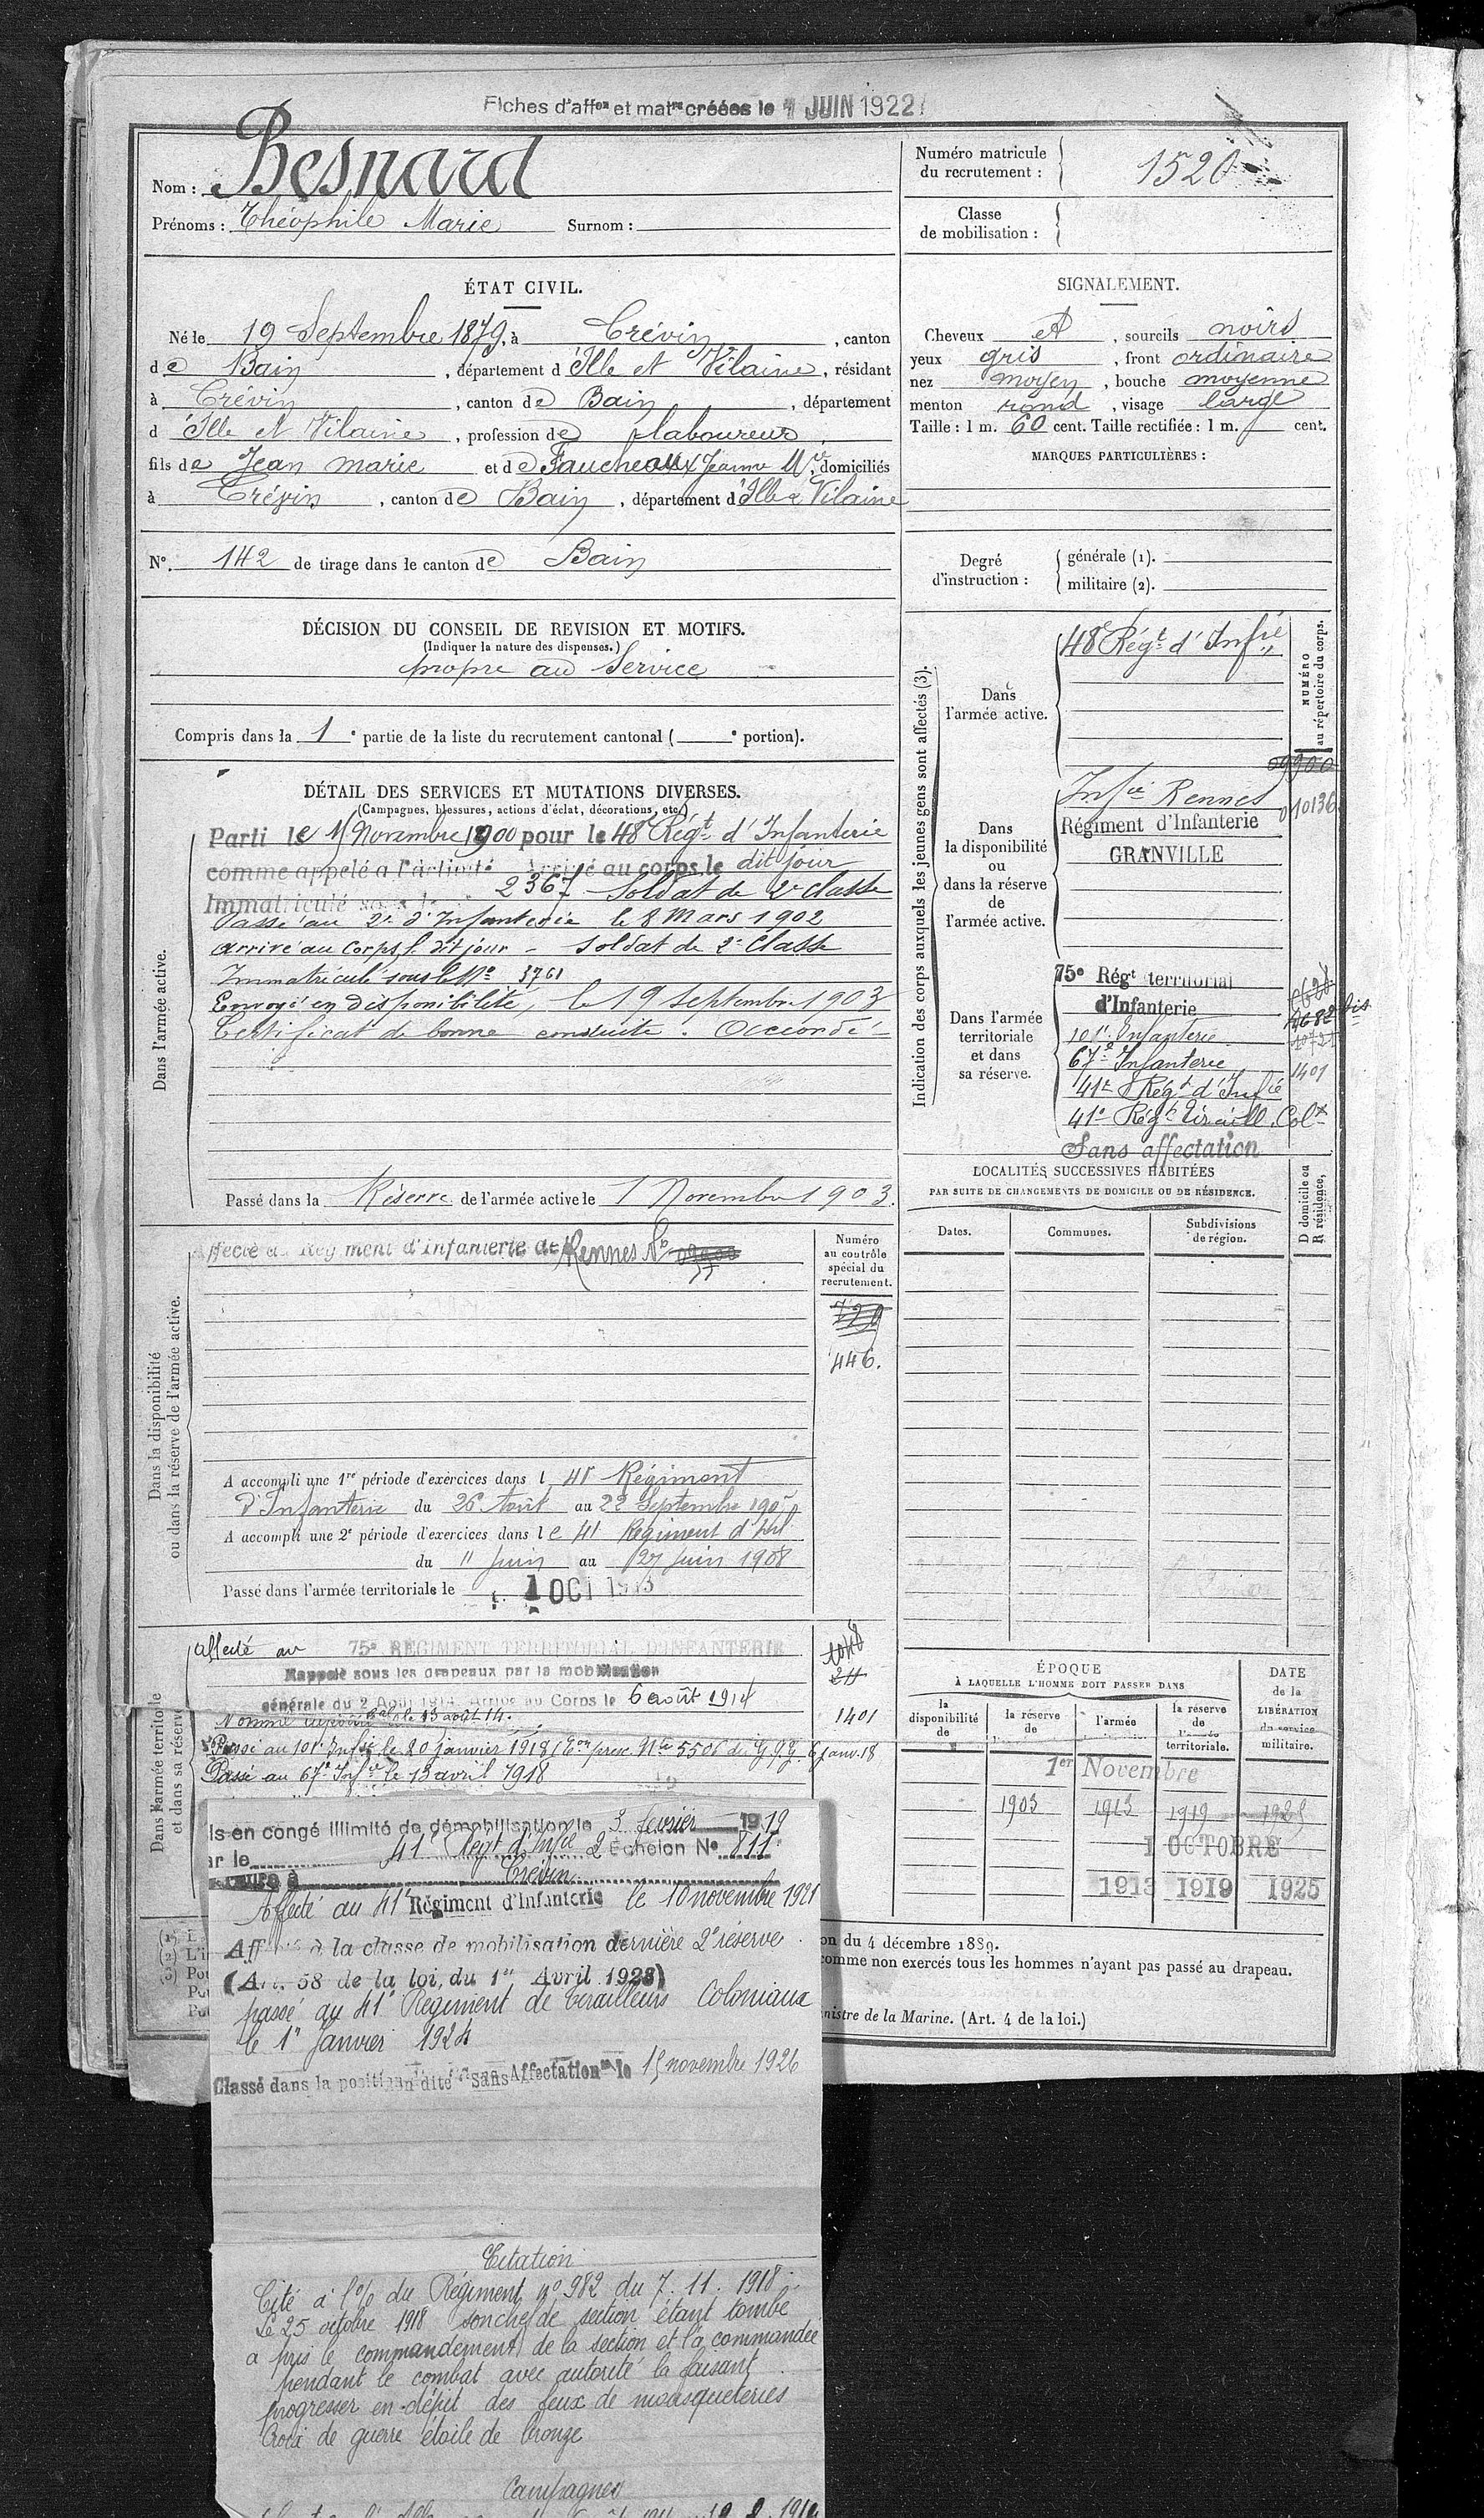 Fiches d'affon et matre créées le 7 JUIN 1922
Nom : Besnard
Prénoms : Théophile Marie Surnom :
Numéro matricule du recrutement : 1520
Classe de mobilisation :
ÉTAT CIVIL.
Né le 19 Septembre 1879, à Crévin, canton
de Bain, département d'Ille et Vilaine, résidant
à Crévin, canton de Bain, département
d'Ille et Vilaine, profession de laboureur
fils de Jean marie et de Faucheoux Jeanne Mie, domiciliés
à Crévin, canton de Bain, département d'Ille & Vilaine
N°. 142 de tirage dans le canton de Bain
SIGNALEMENT.
Cheveux et, sourcils noirs
yeux gris, front ordinaire
nez moyen, bouche moyenne
menton rond, visage large
Taille : 1 m. 60 cent. Taille rectifiée : 1 m. cent.
MARQUES PARTICULIÈRES :
Degré d'instruction : générale (1).
militaire (2).
DÉCISION DU CONSEIL DE REVISION ET MOTIFS.
(Indiquer la nature des dispenses.)
propre au Service
Compris dans la 1e partie de la liste du recrutement cantonal ( e portion).
DÉTAIL DES SERVICES ET MUTATIONS DIVERSES.
(Campagnes, blessures, actions d'éclat, décorations, etc.)
Dans l'armée active.
Parti le 15 Novembre 1900 pour le 48e Régt d'Infanterie
comme appelé à l'activité Arrivé au corps le dit jour
Immatriculé sous le 2367 Soldat de 2e classe
Passé au 2e d'Infanterie le 8 Mars 1902
arrivé au Corps l. dit jour - Soldat de 2e Classe
Immatriculé sous le No 3761
Envoyé en disponibilité, le 19 Septembre 1903
Certificat de bonne conduite. Accordé
Passé dans la Réserve de l'armée active le 1 Novembre 1903.
Indication des corps auxquels les jeunes gens sont affectés (3).
NUMÉRO au répertoire du corps.
Dans l'armée active.
48e Régt d'Infie
Dans la disponibilité ou dans la réserve de l'armée active.
09900
Infie Rennes
010136
Régiment d'Infanterie
GRANVILLE
Dans l'armée territoriale et dans sa réserve.
75e Régt territorial
d'Infanterie
101e Infanterie
67e Infanterie
1401
41e Régt d'Infie
41e Régt Tiraill. Colx
Sans affectation
LOCALITÉS SUCCESSIVES HABITÉES
PAR SUITE DE CHANGEMENTS DE DOMICILE OU DE RÉSIDENCE.
Dates. Communes. Subdivisions de région.
D domicile ou R résidence.
Dans la disponibilité ou dans la réserve de l'armée active.
Affecté au Régiment d'Infanterie de Rennes No
Numéro au contrôle spécial du recrutement.
729
446.
A accompli une 1re période d'exercices dans l 41e Régiment
d'Infanterie du 26 Août au 22 Septembre
A accompli une 2e période d'exercices dans le 41 Régiment d'Inf
du 11 juin au 27 juin 1908
Passé dans l'armée territoriale le 1 OCT 1913
Dans l'armée territoriale et dans sa réserve
affecté au 75e RÉGIMENT TERRITORIAL D'INFANTERIE
Rappelé sous les drapeaux par la mobilisation
générale du 2 Août 1914. Arrivé au Corps le 6 août 1914
Nommé caporal le 13 août 14.
1401
Passé au 101e Infie le 20 janvier 1918 (Eon presc. Nle 5506 du G.Q.G. 6 Janv. 18
Passé au 67e Infie le 13 avril 1918
ÉPOQUE
À LAQUELLE L'HOMME DOIT PASSER DANS
la disponibilité de
la réserve de
l'armée
la réserve de l'armée territoriale.
DATE de la LIBÉRATION du service militaire.
1er Novembre
1903 1913 1919 1925
1 OCTOBRE
1913 1919 1925
is en congé illimité de démobilisation le 3 fevrier 1919
ar le 41e Régt d'Infie 2 Echelon No 811
Crévin
Affecté au 41e Régiment d'Infanterie le 10 novembre 1921
Aff à la classe de mobilisation dernière 2e réserve.
(Art. 58 de la loi du 1er Avril 1923)
passé au 41e Régiment de Tirailleurs Coloniaux
le 1er Janvier 1924
Classé dans la position dite "Sans Affectation" le 15 novembre 1926
on du 4 décembre 1889.
comme non exercés tous les hommes n'ayant pas passé au drapeau.
nistre de la Marine. (Art. 4 de la loi.)
Citation
Cité à l'o/ du Régiment no 982 du 7. 11. 1918.
Le 25 octobre 1918 son chef de section étant tombé
a pris le commandement de la section et l'a commandée
pendant le combat avec autorité la faisant
progresser en dépit des feux de mousqueteries
Croix de guerre étoile de bronze
Campagnes